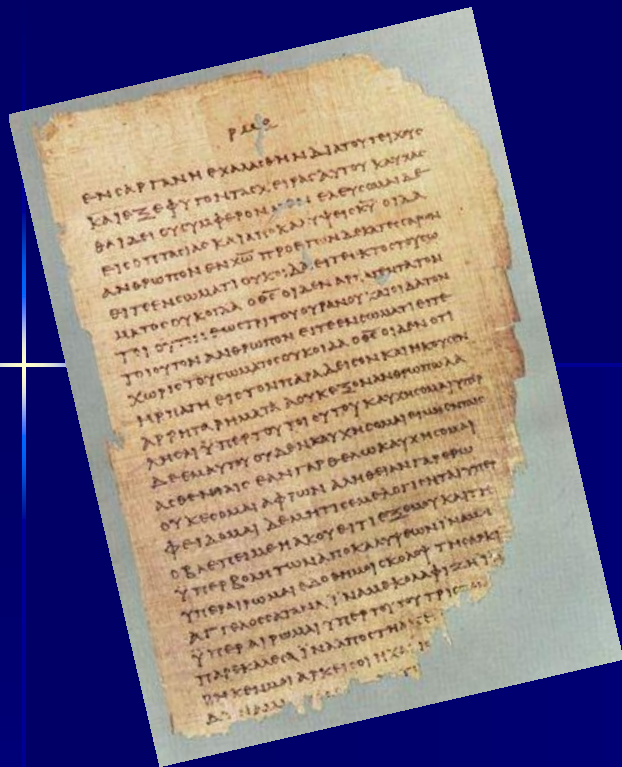 ενϲαργανηεχαλαϲθηνδιατουτειχουϲ
καιεξεφυγονταϲχειραϲαυτουκαυχαϲ
θαιδειουϲυμφερονμενελευϲομαιδε
ειϲοπταϲιαϲκαιαποκαλυψειϲκ̅υ̅οιδα
ανθρωπονενχ̅ω̅προετωνδεκατεϲϲαρων
ειτεενϲωματιουκοιδαειτεεκτοϲτουϲω
ματοϲουκοιδαοθ̅ϲ̅οιδεναρπαγεντατον
τοιουτονεωϲτριτουουρανουκαιοιδατον
τοιουτονανθρωπονειτεενϲωματιειτε
χωριϲτουϲωματοϲουκοιδαοθ̅ϲ̅οιδενοτι
ηρπαγηειϲτονπαραδειϲονκαιηκουϲεν
αρρηταρηματααουκεξονανθρωπωλα
ληϲαιϋπερτουτοιουτουκαυχηϲομαιυπερ
δεεμαυτουουδενκαυχηϲομαιειμηενταιϲ
αϲθενειαιϲεανγαρθελωκαυχηϲομαι
ουκεϲομαιαφρωναληθειανγαρερω
φειδομαιδεμητιϲεμελογιϲηταιυπερ
οβλεπειμεηακουειτιεξεμουκαιτη
ϋπερβοληtωναποκαλυψεωνιναμη
υπεραιρωμαιεδοθημοιϲκολοψτηϲαρκι
αγγελοϲϲαταναϊναμεκολαφιζηινα
ϋπεραιρωμαιυπερτουτουτριϲ
παρεκαλεϲαϊνααποϲτη
ειρηκενμοιαρκειϲοιηχα